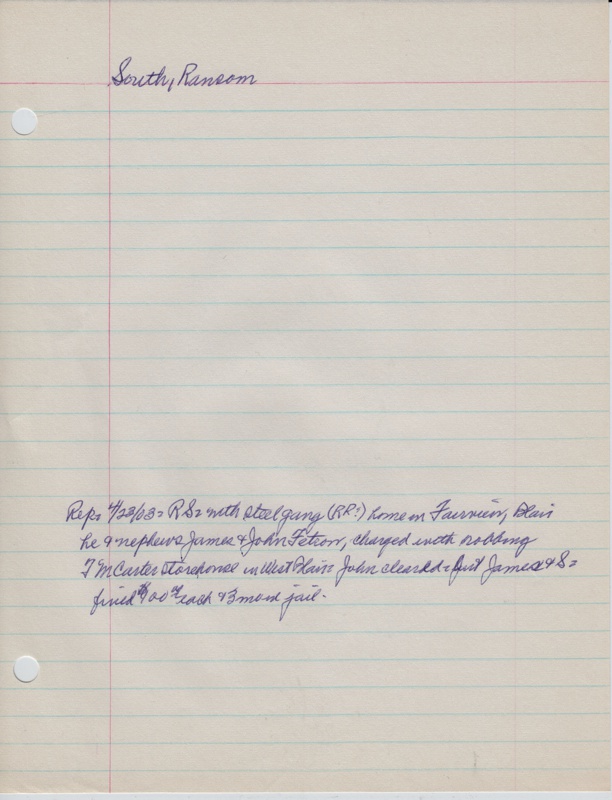 South, Ransom
Rep: 4/23/03 = RS = with steel gang (RR?) home in Fairview, Blair
he & nephews James & John Fetron, charged with robbing
T M Carter storehouse in West Plain = John cleared = but James & S =
fined $100 each & 3 mons jail.